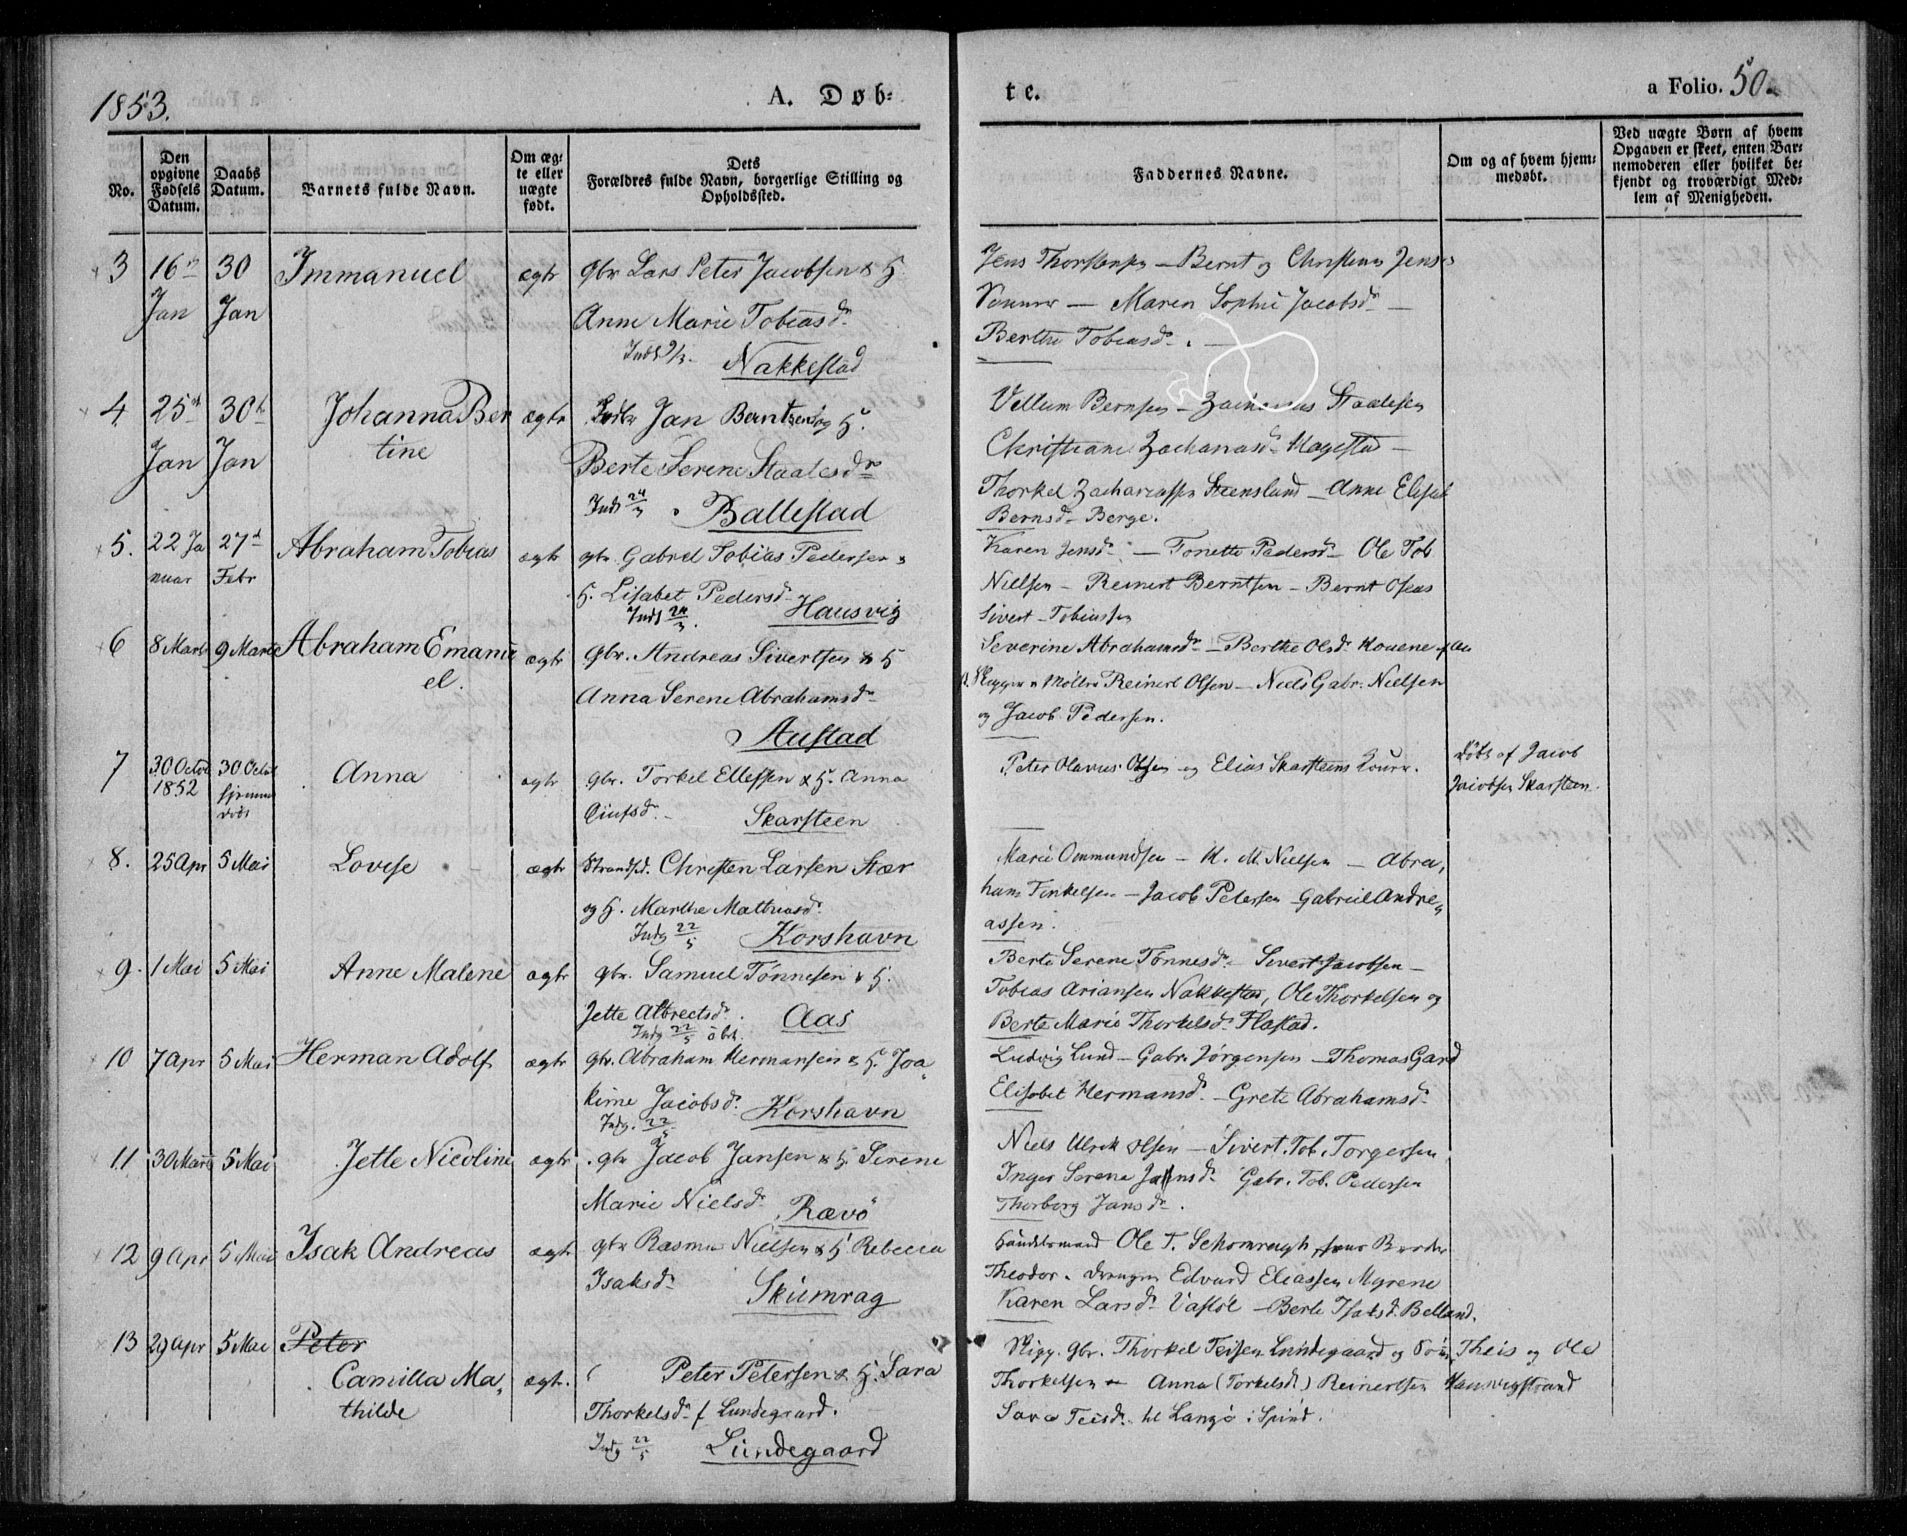 1853.
A. Døb-
te.
a Folio. 50.
No.
Den opgivne Fødsels Datum.
Daabs Datum.
Barnets fulde Navn.
Om ægte eller uægte født.
Dets Forældres fulde Navn, borgerlige Stilling og Opholdssted.
Faddernes Navne.
Om og af hvem hjemmedøbt.
Ved uægte Børn af hvem Opgaven er skeet, enten Barnemoderen eller hvilket bekjendt og troværdigt Medlem af Menigheden.
3 16 Jan 30 Jan Immanuel ægte gbr Lars Peter Jacobsen & H.
Anne Marie Tobiasd.
Nakkestad
Jens Thorstensen – Bernt og Christense Jens-
Maren Sophie Jacobsd. –
Berthe Tobiasd. –
4 25 Jan 30 Jan Johanna Ber
tine
ægte Jan Berntsen og H.
Berte Serene Staalesd.
Inds 24/3 Ballestad
Villum Bernsen – Zacharias Staalesen
Christiane Zachariasd. Hagestad –
Thorkel Zachariassen Steensland – Anne Elisab
Bernsd. Berge.
5. 22 Ja
nuar
27 Febr
Abraham Tobias ægte gbr. Gabriel Tobias Pedersen &
H. Lisabet Pedersd.
Inds 24/3. Hausvig
Karen Jensd. – Tonette Pedersd. – Ole Tob
Nielsen – Reinert Berntsen – Bernt Oseas
Sivert Tobiassen
6 8 Marts 9 Marts Abraham Emanu
el.
ægte gbr. Andreas Sivertsen & H
Anna Serene Abrahamsd.
Austad
Severine Abrahamsd. – Berthe Olsd. Kouene
Reinert Olsen – Niels Gabr. Nielsen
og Jacob Pedersen.
7 30 Octbr
1852
30 Octbr
hjemme
døbt
Anna ægte gbr. Torkel Ellefsen & H. Anna
Skarsteen
Peter Olavus Olsen og Elias Skarsteens Kone.
Døbt af Jacob
Jacobsen Skarsteen.
8. 25 Apr 5 Mai Lovise ægte Strands. Christen Larsen Stær
og H. Marthe Mathiasd.
Indg 22/5 Korshavn
Marie Ommundsen – K. M. Nielsen – Abra,
ham Terkelsen – Jacob Petersen – Gabriel Andre„
assen.
9. 1 Mai 5 Mai Anne Malene ægte gbr. Samuel Tønnesen & H.
Jette Albrectsd.
Indg 22/5 Aas
Berte Serene Tønnesd. – Sivert Jacobsen –
Tobias Ariansen Nakkestad, Ole Thorkelsen og
Berte Marie Thorkelsd. Flastad.
10 7 Apr 5 Mai Herman Adolf ægte gbr. Abraham Hermansen & H. Joa„
kime Jacobsd.
Indg. 22/5 Korshavn
Ludvig Lund – Gabr. Jørgensen – Thomas Gard
Elisabet Hermansd. – Grete Abrahamsd.
11 30 Marts 5 Mai Jette Nicoline ægte gbr Jacob Jansen & H. Serene
Marie Nielsd. Rævø
Niels Ulrik Olsen – Sivert Tob. Torgersen
Inger Serene Jansd. Gabr. Tob. Pedersen
Thorborg Jansd.
12 9 Apr 5 Mai Isak Andreas ægte gbr Rasmus Nielsen & H Rebecca
Isaksd.
Skumrag
Handelsmand Ole T. Schomragh, hans Broder
Theodor. drengen Edvard Eliassen Myrene
Karen Larsd. Vatstøl – Berte Isaksd. Belland.
13 29 Apr 5 Mai Peter
Camilla Ma„
thilde
ægte. Peter Petersen & H. Sara
Thorkelsd. f Lundegaard.
Indg 22/5 Lundegaard
gbr. Thorkel Teisen Lundegaard og Theis og Ole
Thorkelsen – Anna (Torkelsd.) Reinertsen Hausvigstrand
Sara Teisd. til Langø i Spind.